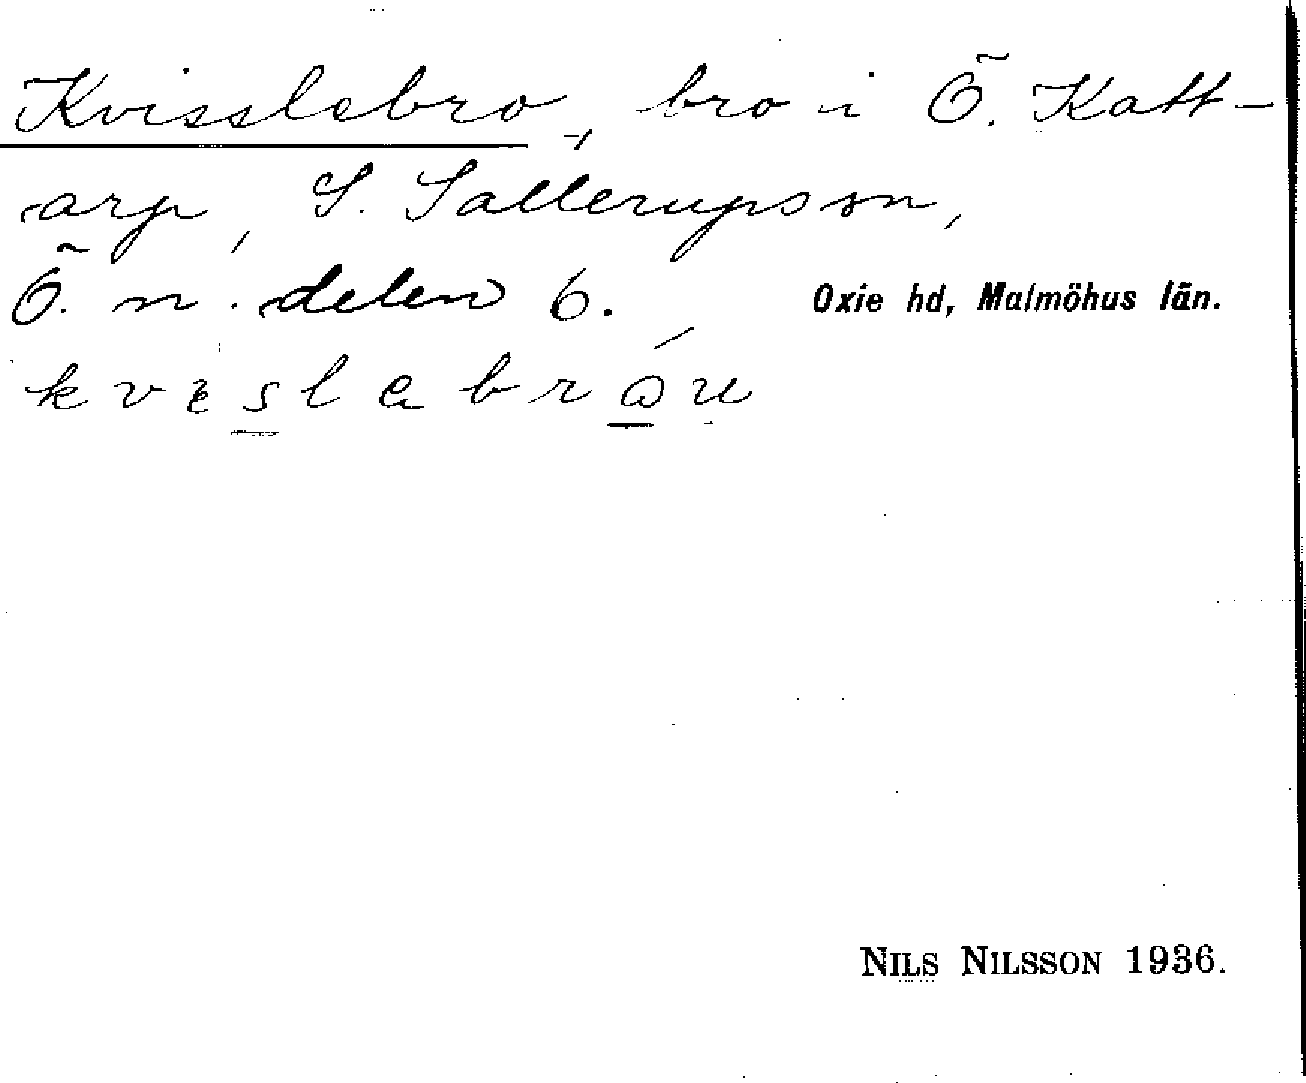 Kvisslebro, bro i Ö. Katt-
arp, S. Sallerupssn,
Ö. n. delen 6. Oxie hd, Malmöhus län.
kvislebrou
NILS NILSSON 1936.